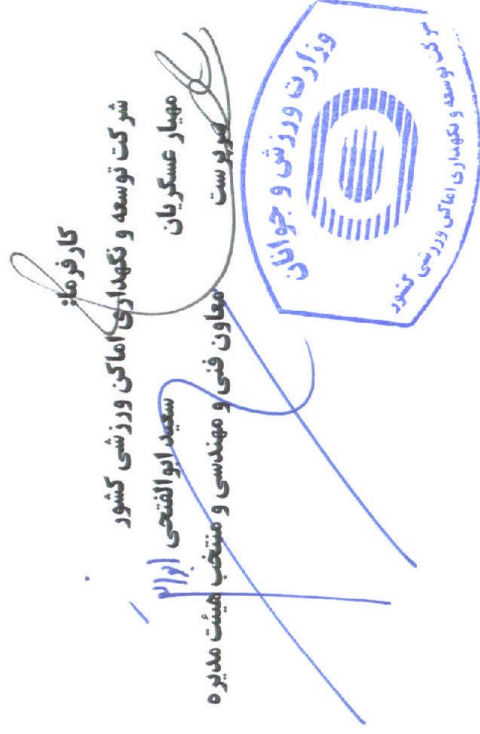 کارفرما:
شرکت توسعه و نگهداری اماکن ورزشی کشور
مهیار عسکریان
سرپرست
سعید ابوالفتحی
معاون فنی و مهندسی و منتخب هیئت مدیره
وزارت ورزش و جوانان
شرکت توسعه و نگهداری اماکن ورزشی کشور